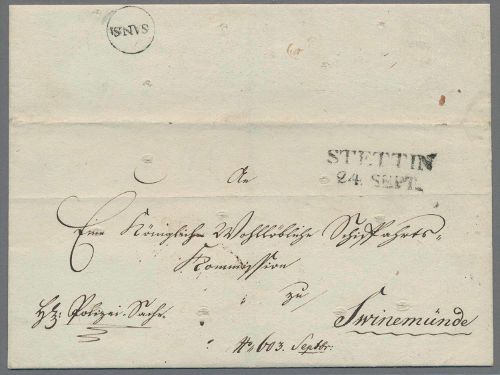 STETTIN
24. SEPT.
An
Eine Königliche Wohllöbliche Schiffahrts=
Kommission
zu
Swinemünde
Polizei-Sache.
No 603. Septbr: